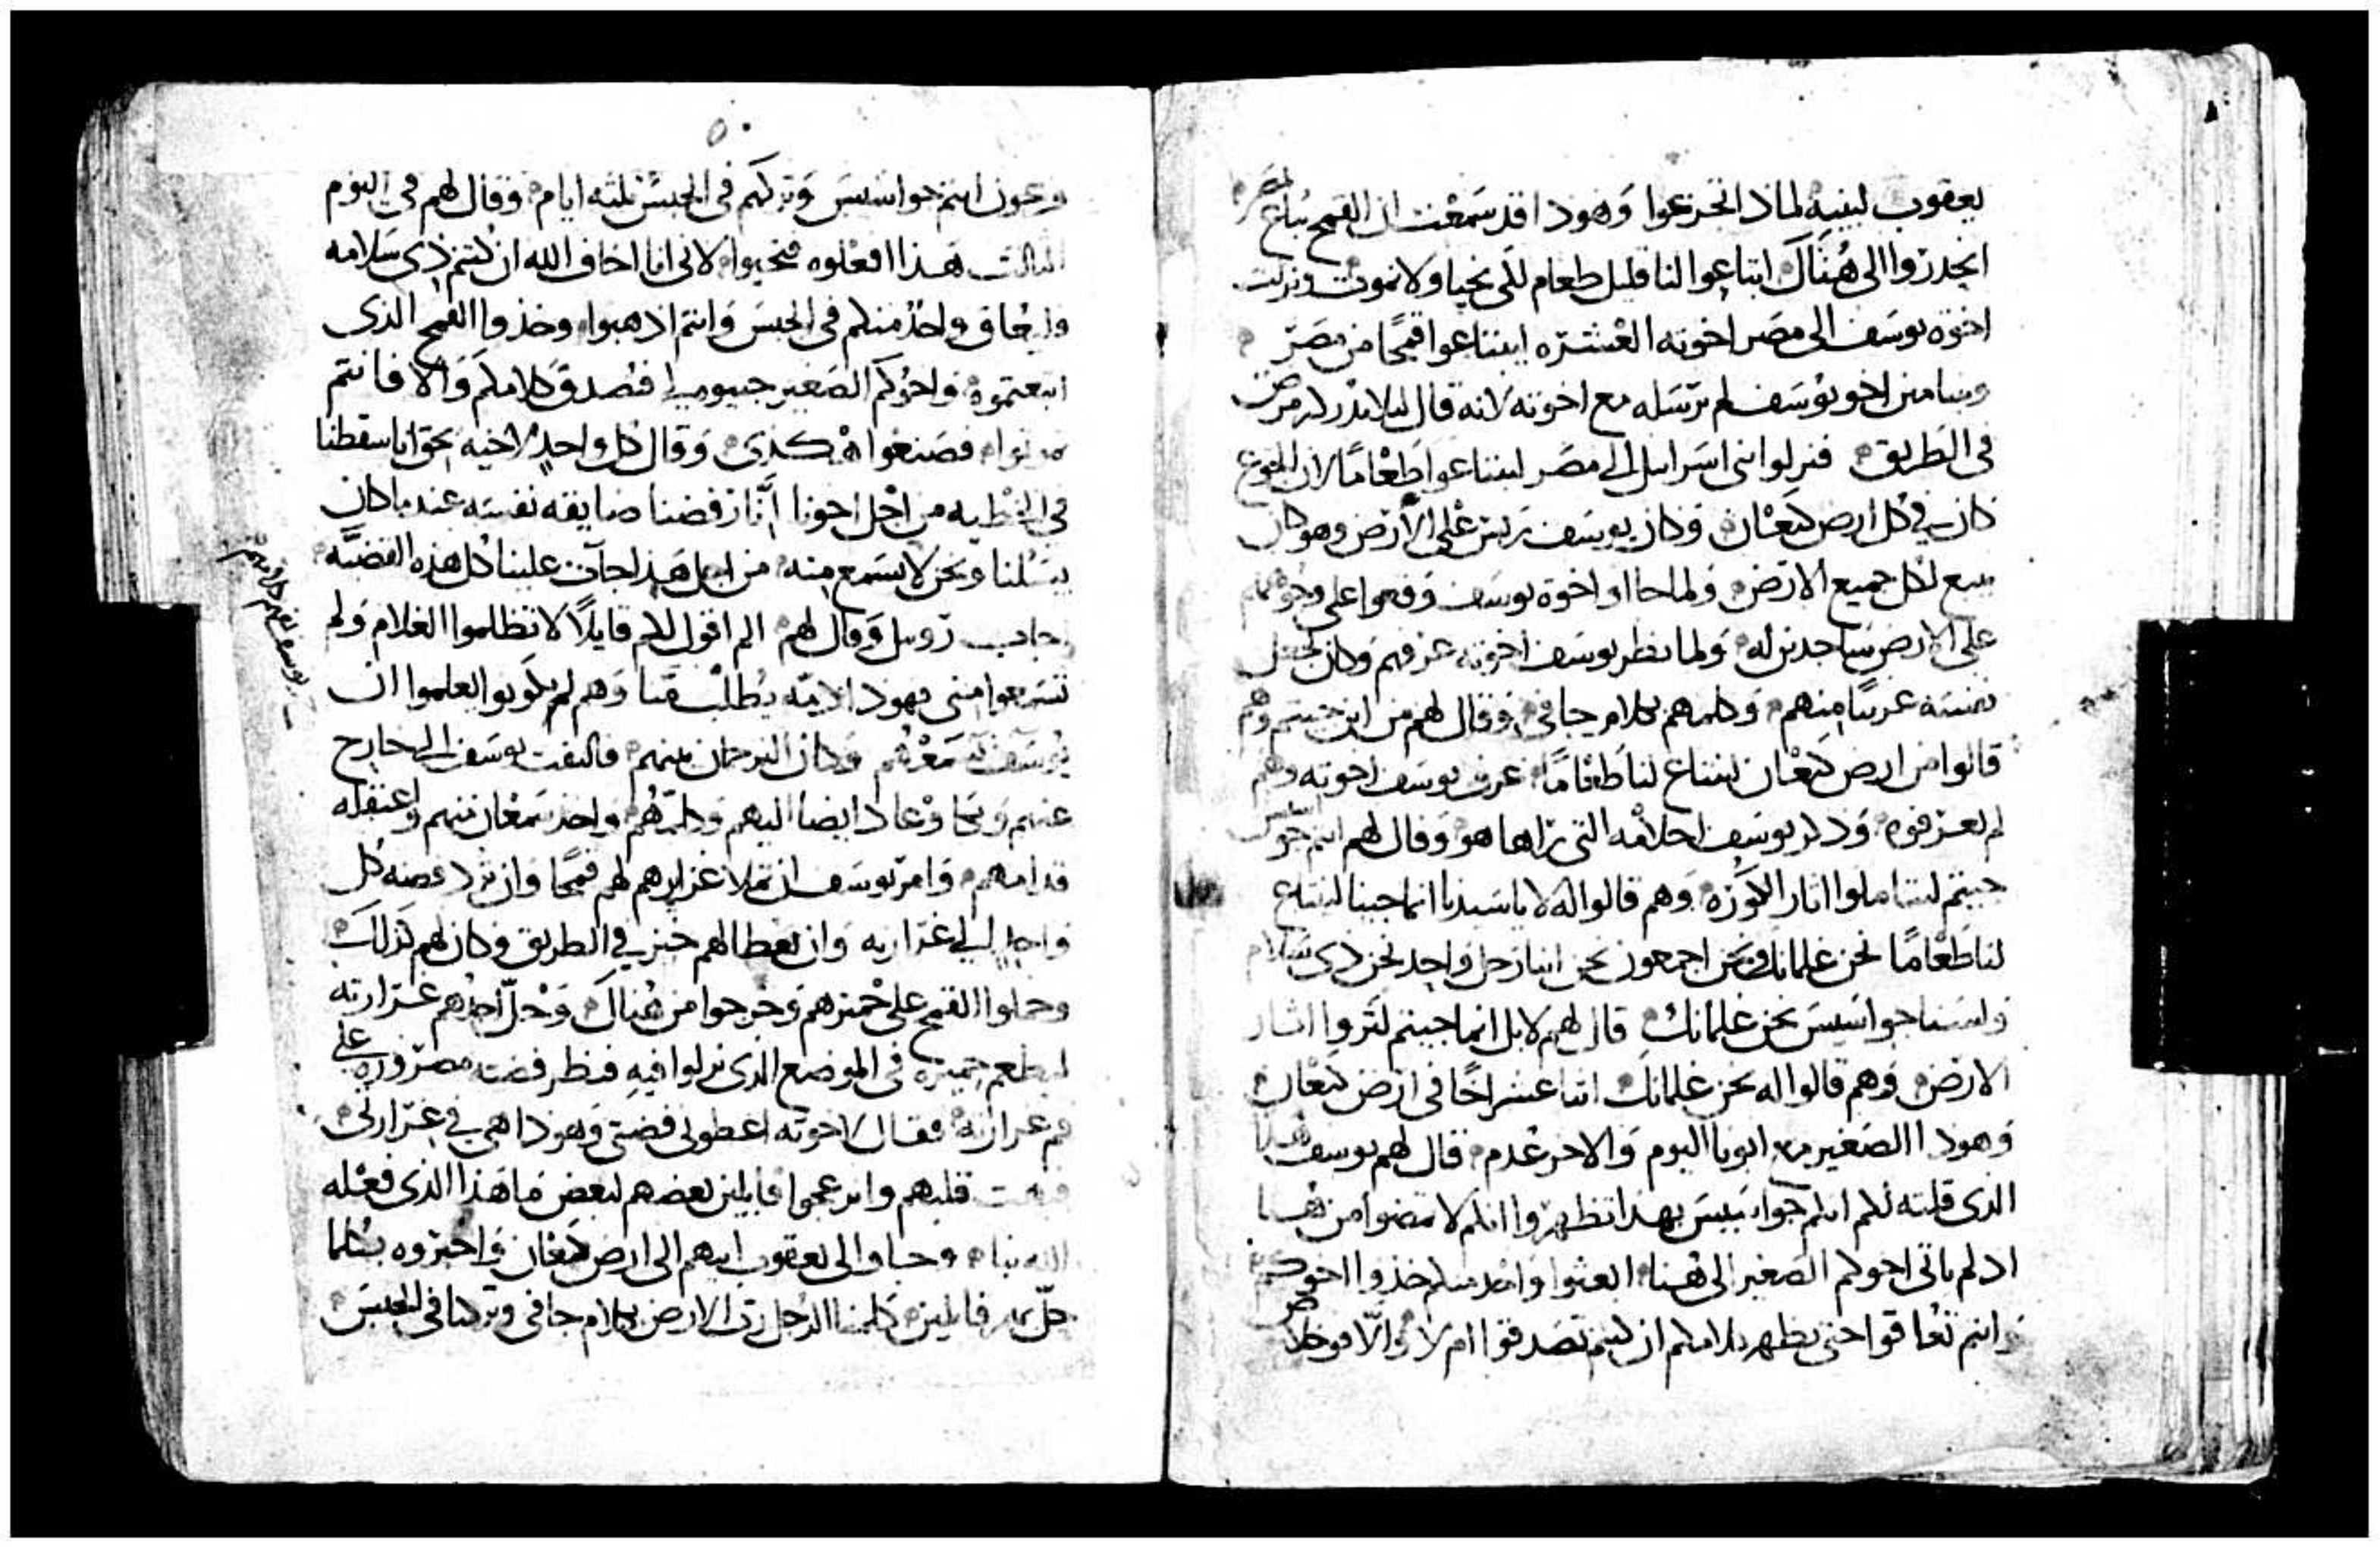 يعقوب لبنيه لماذا تجزعوا وهوذا قد سمعت ان القمح يباع بمصر
انحدروا الى هناك ابتاعوا لنا قليل طعام لكى نحيا ولا نموت ونزلت
اخوة يوسف الى مصر اخوته العشره ليبتاعوا قمحًا من مصر
وبنيامين اخو يوسف لم يرسله مع اخوته لانه قال ليلا يدركه مرض
فى الطريق فنزلوا بنى اسراييل الى مصر ليبتاعوا طعامًا لان الجوع
كان فى كل ارض كنعان وكان يوسف ريس على الارض وهو كان
يبيع لكل جميع الارض ولما جااوا اخوة يوسف وقعوا على وجوههم
على الارض ساجدين له ولما نظر يوسف اخوته عرفهم وكان يجعل
نفسه غريبًا منهم وكلمهم بكلام جافى وقال لهم من اين جيتم وهم
قالوا من ارض كنعان لنبتاع لنا طعامًا عرف يوسف اخوته وهم
لم يعرفوه وذكر يوسف احلامه التى راها هو وقال لهم انتم جواسيس
جيتم لتتاملوا اثار الكوره وهم قالوا له لا يا سيدنا انما جينا لنبتاع
لنا طعامًا نحن غلمانك ونحن اجمعون نحن ابنا رجل واحد نحن ذى سلام
ولسنا جواسيس نحن غلمانك قال لهم لا بل انما جيتم لتروا اثار
الارض وهم قالوا له نحن غلمانك اثنا عشر اخًا فى ارض كنعان
وهوذا الصغير مع ابونا اليوم والاخر عدم قال لهم يوسف هذا
الذى قلته لكم انكم جواسيس بهذا تظهروا انكم لا تمضوا من هنا
اذ لم ياتى اخوكم الصغير الى هنا ابعثوا واحد منكم خذوا اخوكم
وانتم تعاقوا حتى يظهر كلامكم ان كنتم تصدقوا ام لا والا فوحق
فرعون انتم جواسيس وتركهم فى الحبس ثلثه ايام وقال لهم فى اليوم
الثالث هذا افعلوه فتحيوا لانى انا اخاف الله ان كنتم ذى سلامه
وليعاق واحد منكم فى الحبس وانتم اذهبوا وخذوا القمح الذى
ابتعتموه واخوكم الصغير جيبوه لى فتصدق كلامكم والا فانتم
تموتوا فصنعوا هكذى وقال كل واحد لاخيه بحق انا سقطنا
فى الخطيه من اجل اخونا اننا رفضنا ضايقه نفسه عندما كان
يسلنا ونحن لا نسمع منه من اجل هذا جآت علينا كل هذه القضيه
اجاب روبيل وقال لهم الم اقول لكم قايلاً لا تظلموا الغلام ولم
تسمعوا منى فهوذا دمه يطلب منا وهم لم يكونوا يعلموا ان
يوسف يسمعهم وكان الترجمان بينهم فالتفت يوسف الى خارج
عنهم وبكا وعاد ايضا اليهم وكلمهم واخذ سمعان منهم واعتقله
قدامهم وامر يوسف ان تملا غرايرهم لهم قمحًا وان ترد فضه كل
واحدٍ الى غرارته وان يعطا لهم خبز فى الطريق وكان لهم كذلك
وحملوا القمح على حميرهم وخرجوا من هناك وحلّ احدهم غرارته
ليطعم حميره فى الموضع الذى نزلوا فيه فنظر فضته مصروره على
فم غرارته فقال لاخوته اعطونى فضتى وهوذا هى فى غرارتى
فبهت قلبهم وانزعجوا قايلين بعضهم لبعض ما هذا الذى فعله
الله بنا وجاوا الى يعقوب ابيهم الى ارض كنعان واخبروه بكلما
حلّ بهم قايلين كلمنا الرجل رب الارض بكلام جافى وتركنا فى الحبس